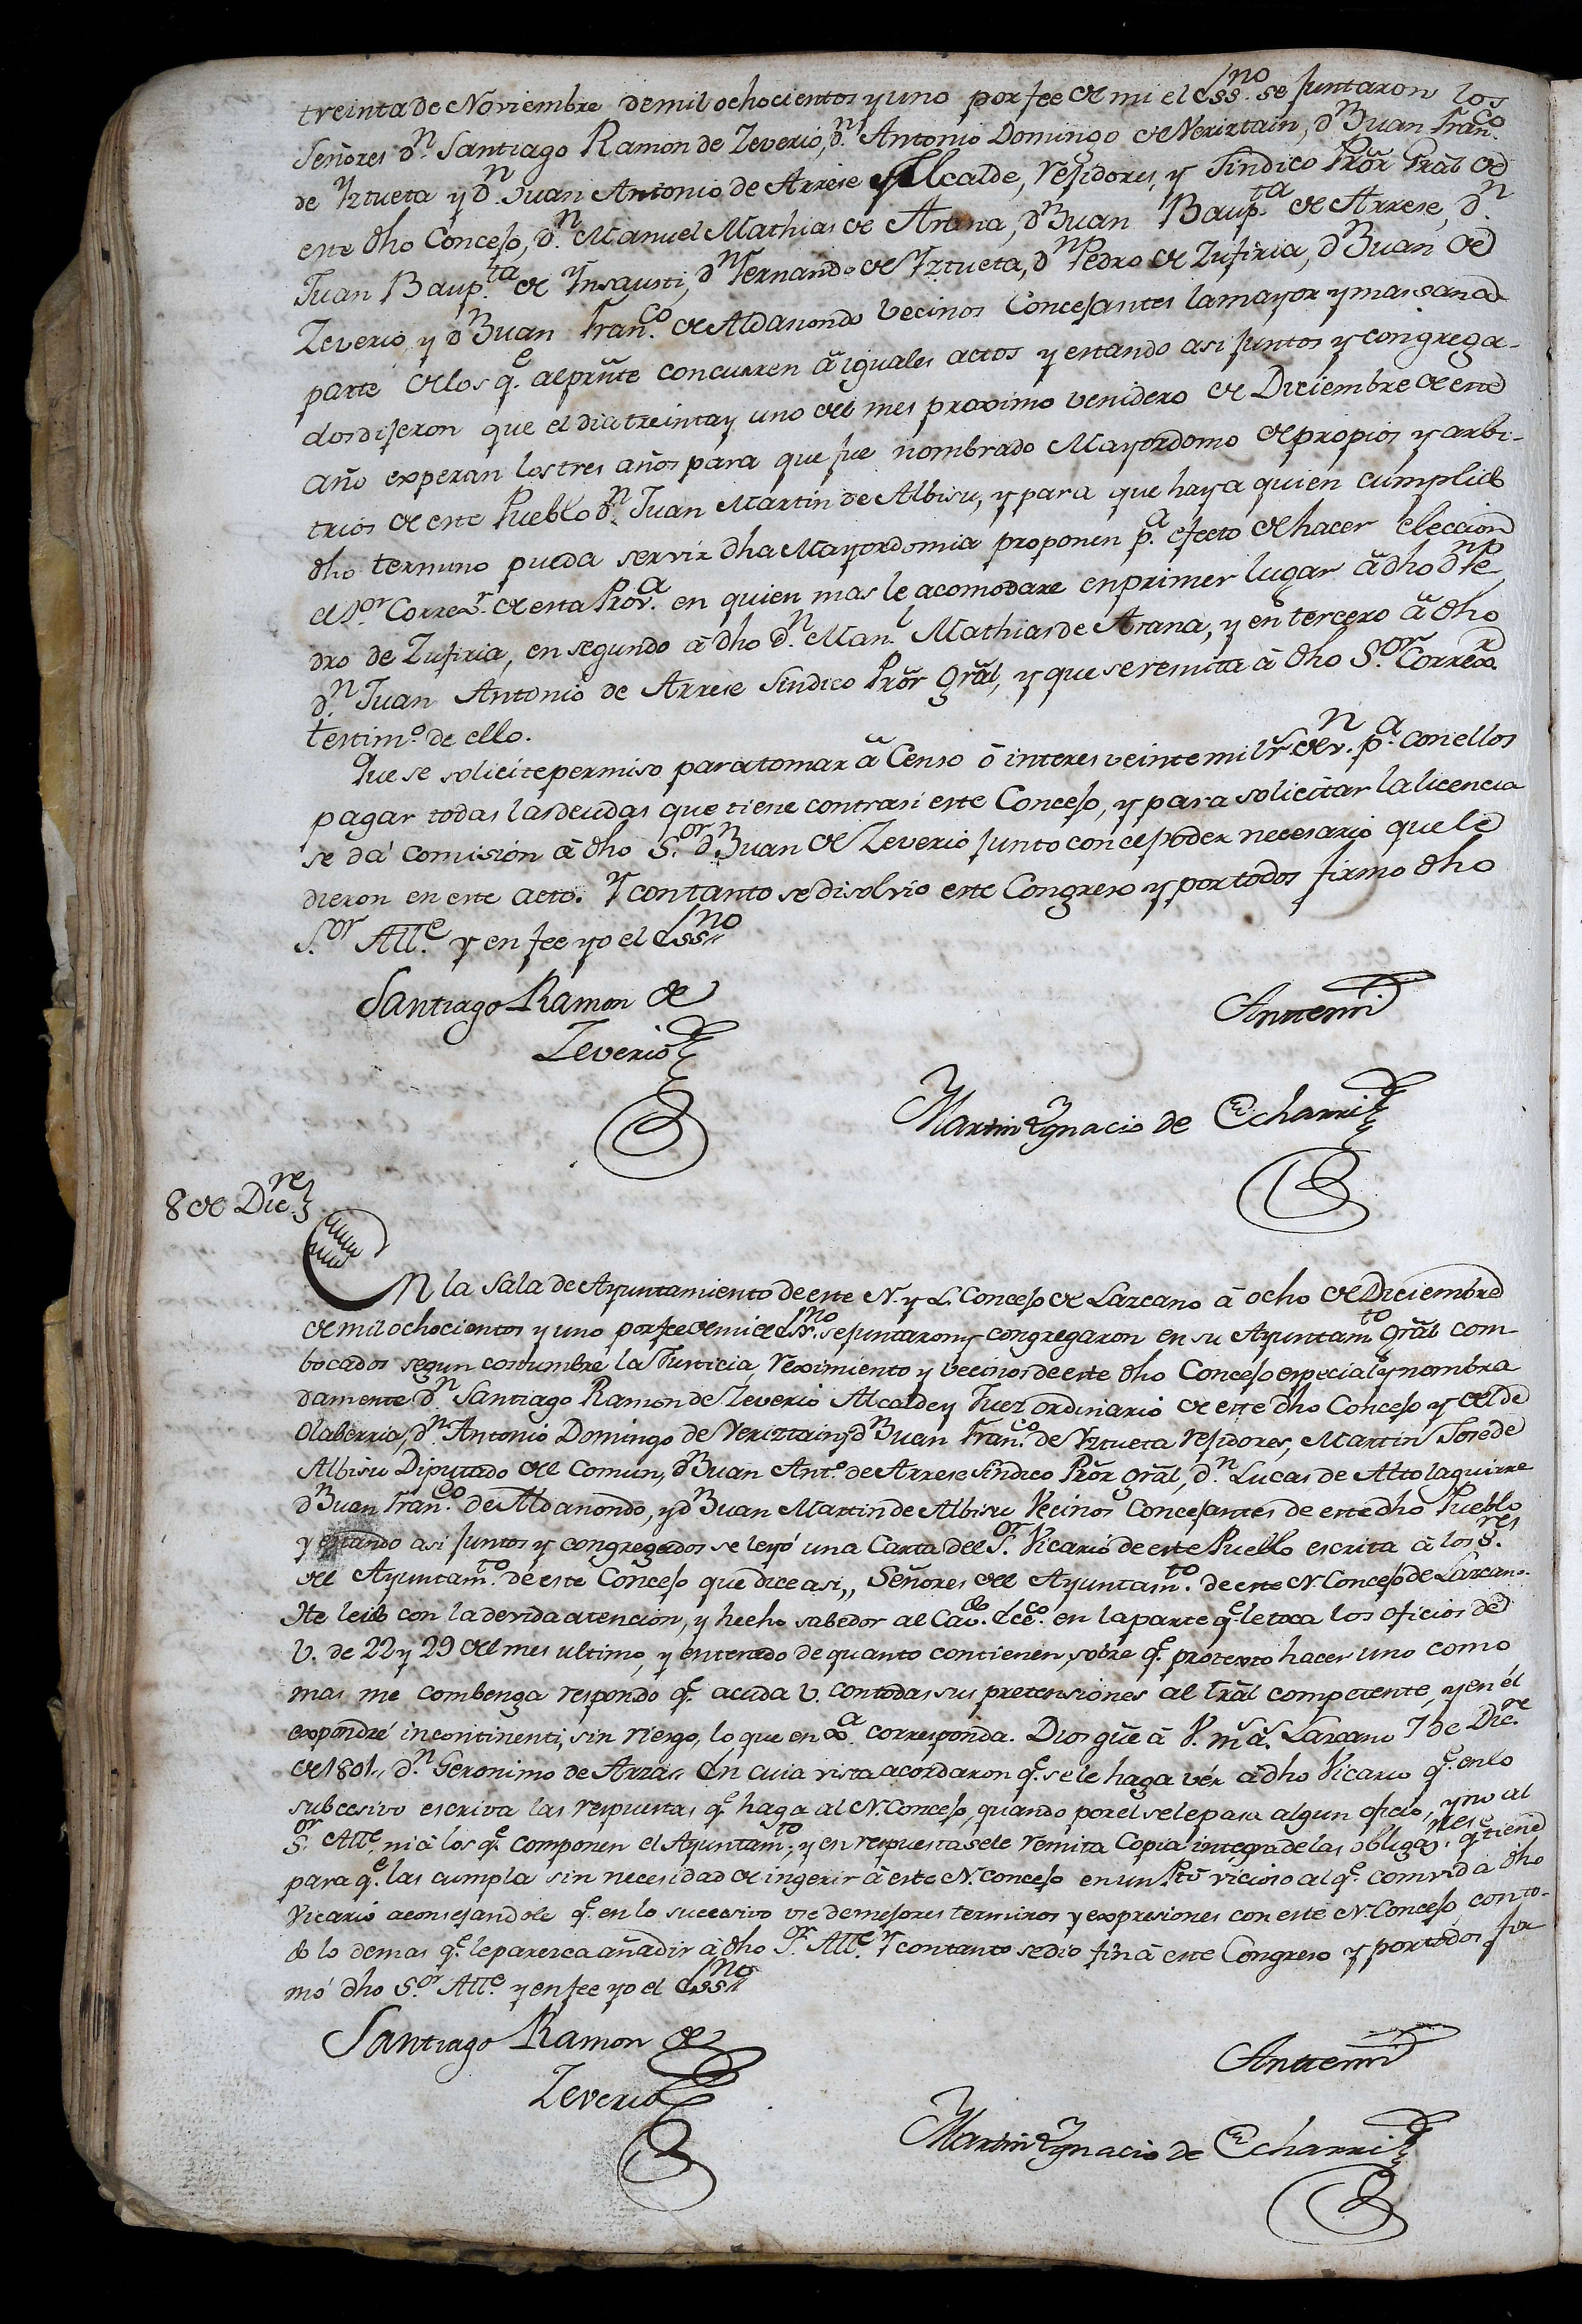 treinta de Noviembre de mil ochocientos y uno por fee de mi el Essno. se juntaron los
Señores dn. Santiago Ramon de Zeverio, dn. Antonio Domingo de Veriztain, dn. Juan Franco.
de Yztueta y dn. Juan Antonio de Arrese Alcalde, Rejidores, y Sindico Pror Gral de
este dho Concejo, dn. Manuel Mathias de Arana, dn Juan Baupta. de Arrese, dn.
Juan Baupta. de Ynsausti, dn Fernando de Yztueta, dn Pedro de Zufiria, dn Juan de
Zeverio, y dn Juan Franco. de Aldanondo vecinos Concejantes la mayor y mas sana
parte de los qe. al prñte concurren â iguales actos y estando asi juntos y congrega-
dos dijeron que el dia treinta y uno del mes proximo venidero de Diciembre de este
año experan los tres años para que fue nombrado Mayordomo de propios y arbi-
trios de este Pueblo dn. Juan Martin de Albisu, y para que haya quien cumplido
dho termino pueda servir dha Mayordomia proponen pa. efecto de hacer eleccion
el Sor Correxr. de esta Prova. en quien mas le acomodare en primer lugar â dho dn Pe
dro de Zufiria, en segundo â dho dn. Manl. Mathias de Arana, y en tercero â dho
dn. Juan Antonio de Arrese Sindico Pror Gral, y que se remita â dho Sor. Correxr.
testimo. de ello.
Que se solicite permiso para tomar â Censo ô interes veinte mil rs. de vn. pa. con ellos
pagar todas las deudas que tiene contra si este Concejo, y para solicitar la licencia
se dá comision â dho Sor. dn Juan de Zeverio junto con el poder necesario que le
dieron en este acto. Y con tanto se disolvio este Congreso y por todos firmo dho
Sor. Alle. y en fee yo el Essno
Santiago Ramon de
Zeverio
Ante mi
Martin Ygnacio de Echarri
8 de Dicre.
En la Sala de Ayuntamiento de este N. y L. Concejo de Lazcano â ocho de Diciembre
de mil ochocientos y uno por fee de mi el Essno. se juntaron y congregaron en su Ayuntamto. Gral com
bocados segun costumbre la Justicia, Reximiento y vecinos de este dho Concejo especial y nombra
damente dn. Santiago Ramon de Zeverio Alcalde y Juez ordinario de este dho Concejo y del de
Olaberria, dn. Antonio Domingo de Veriztain, y dn Juan Franco. de Yztueta Rejidores, Martin Jose de
Albisu Diputado del Comun, dn Juan Anto. de Arrese Sindico Pror Gral, dn. Lucas de Altolaguirre
dn Juan Franco. de Aldanondo, y dn Juan Martin de Albisu Vecinos Concejantes de este dho Pueblo
y estando asi juntos y congregados se leyó una Carta del Sor. Vicario de este Pueblo escrita â los Sres.
del Ayuntamto. de este Concejo que dice asi,, Señores del Ayuntamto. de este N. Concejo de Lazcano.
He leido con la devida atencion, y hecho sabedor al Cavdo. Ecco. en la parte qe. le toca los oficios de
V. de 22 y 29 del mes ultimo, y enterado de quanto contienen, sobre qe. protexto hacer uno como
mas me combenga respondo qe. acuda V. con todas sus pretensiones al Tral competente, y en él
expondré incontinenti, sin riesgo, lo que en xa. corresponda. Dios güe â V. ms. as. Lazcano 7 de Dicre.
de 1801,, dn. Geronimo de Arza,, En cuia vista acordaron qe. se le haga vér â dho Vicario qe. en lo
subcesivo escriva las respuestas qe. haga al N. Concejo, quando por el se le pasa algun oficio, y no al
Sor. Alle. ni â los qe. componen el Ayuntamto.; y en respuesta se le remita Copia integra de las obligacnes. qe. tiene
para qe. las cumpla sin necesidad de ingerir â este N. Concejo en un Pto vicioso al qe. comvida dho
Vicario aconsejandole qe. en lo succesivo use de mejores terminos y expresiones con este N. Concejo, con to-
do lo demas qe. le parezca añadir â dho Sor. Alle. Y con tanto se dio fin â este Congreso y por todos fir
mó dho Sor. Alle. y en fee yo el Essno
Santiago Ramon de
Zeverio
Ante mi
Martin Ygnacio de Echarri